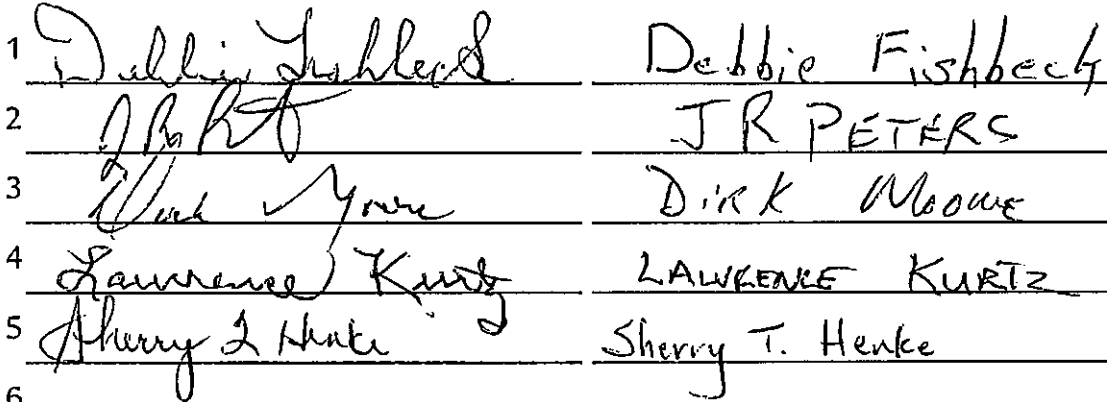 1 Debbie Fishbeck Debbie Fishbeck
2 J R Peters J R PETERS
3 Dirk Moore Dirk Moore
4 Lawrence Kurtz LAWRENCE KURTZ
5 Sherry T Henke Sherry T. Henke
6